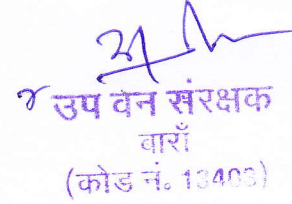 उप वन संरक्षक
बाराँ
(कोड नं. 13403)